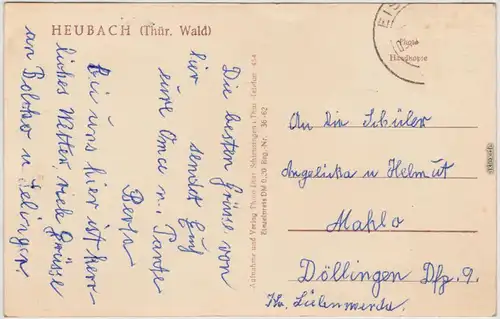 HEUBACH (Thür. Wald)
Die besten Grüsse von
hir sendet Euch
eure Oma u. Tante
Berta
Bei uns hier ist herr-
liches Wetter, viele Grüsse
an Bolcho u Selingen.
Aufnahme und Verlag Photo-Dörr Schleusingen i. Thür.
Einzelpreis DM 0,20 Reg.-Nr.
Photo
Handkopie
An die Schüler
Angelicka u Helmut
Mahlo
Döllingen Dfp. 9.
Kr. Liebenwerda.